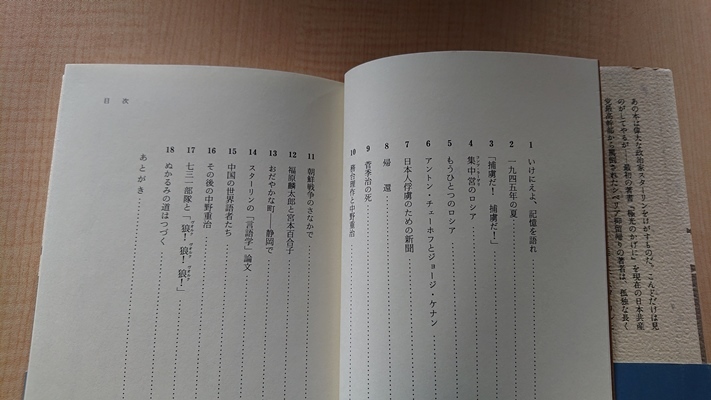 あの本は偉大な政治家スターリンをけがすものだ、こんどだけは見
のがしてやるが――最初の著書『極光のかげに』を現在の日本共産
党最高幹部から罵倒されたシベリア抑留帰りの著者は、孤独な長く
1 いけにえよ、記憶を語れ
2 一九四五年の夏
3 「捕虜だ! 捕虜だ!」
4 集中営のロシア
5 もうひとつのロシア
6 アントン・チェーホフとジョージ・ケナン
7 日本人俘虜のための新聞
8 帰還
9 菅季治の死
10 務台理作と中野重治
11 朝鮮戦争のさなかで
12 福原麟太郎と宮本百合子
13 おだやかな町――静岡で
14 スターリンの「言語学」論文
15 中国の世界語者たち
16 その後の中野重治
17 七三一部隊と「狼! 狼! 狼!」
18 ぬかるみの道はつづく
あとがき
目次